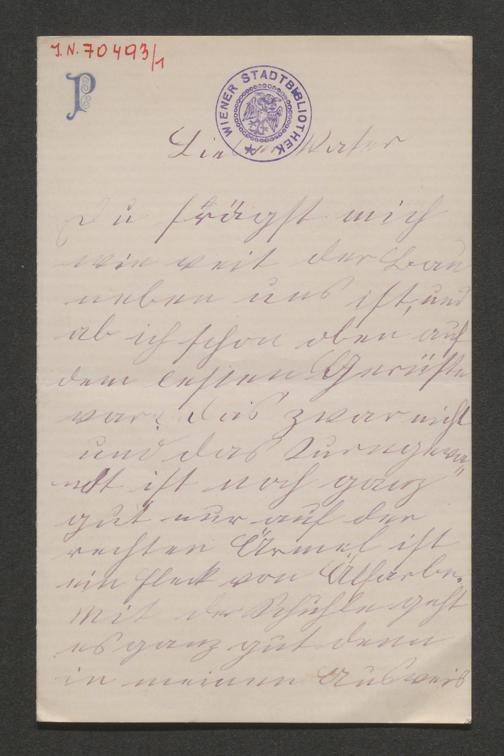 J.N. 70493/1
P
WIENER STADTBIBLIOTHEK
Lieber Vater
Du frägst mich
wie weit der Bau
neben uns ist, und
ob ich schon oben auf
dem lesten Gerüste
war? Das zwar nicht
und das Turngewa„
ndt ist noch ganz
gut nur auf der
rechten Ärmel ist
ein Fleck von Ölfarbe.
Mit der Schuhle geht
es ganz gut denn
in meinen Ausweis